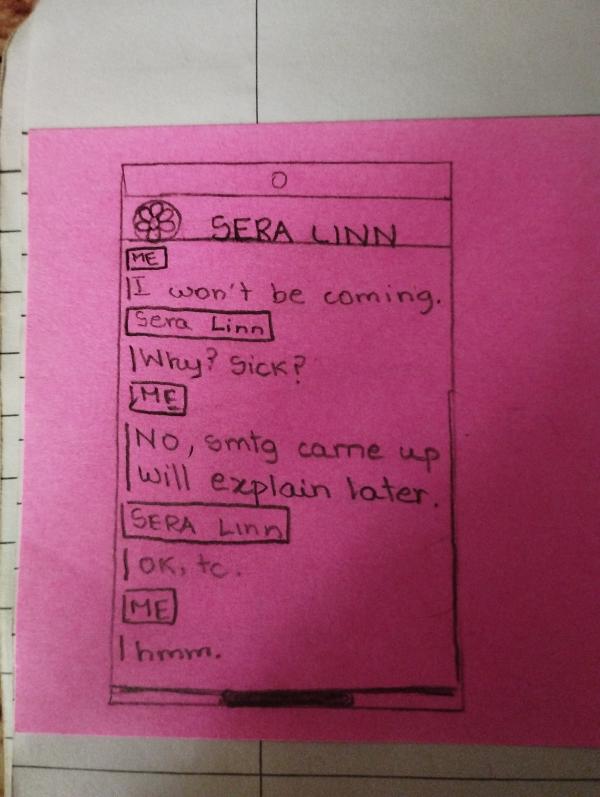 SERA LINN
ME
I won't be coming.
Sera Linn
Why? Sick?
ME
No, smtg came up
will explain later.
SERA Linn
OK, tc.
ME
hmm.